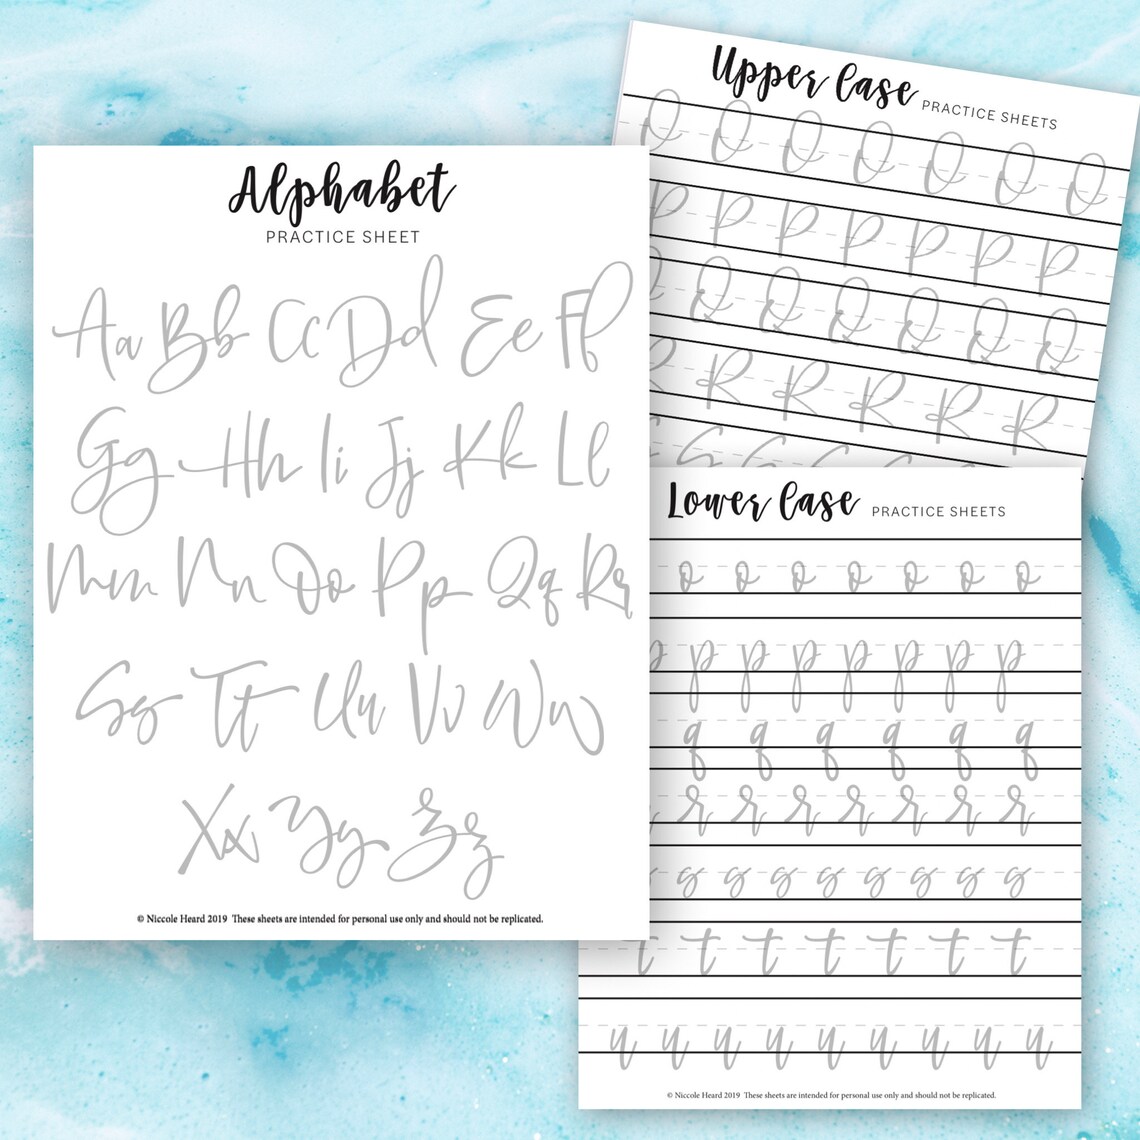 Alphabet
PRACTICE SHEET
Aa Bb Cc Dd Ee Ff
Gg Hh Ii Jj Kk Ll
Mm Nn Oo Pp Qq Rr
Ss Tt Uu Vv Ww
Xx Yy Zz
© Niccole Heard 2019 These sheets are intended for personal use only and should not be replicated.
Upper Case PRACTICE SHEETS
O O O O O O O
P P P P P P P
Q Q Q Q Q Q Q
R R R R R R
S S S
Lower Case PRACTICE SHEETS
o o o o o o o
p p p p p p p p
q q q q q q
r r r r r r r
s s s s s s s s
t t t t t t t
u u u u u u u u u
© Niccole Heard 2019 These sheets are intended for personal use only and should not be replicated.